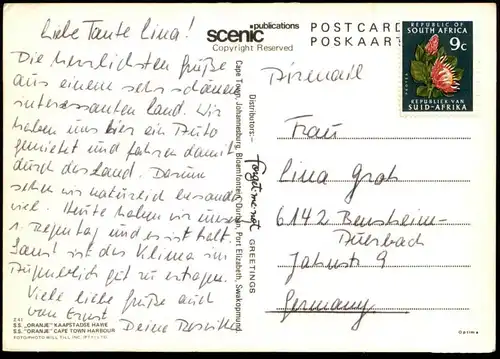 Liebe Tante Lina!
Die herzlichsten Grüße
aus einem sehr schönen
interessanten Land. Wir
haben uns hier ein Auto
gemietet und fahren damit
durch das Land. Darum
sehen wir natürlich besonders
viel. Heute haben wir unseren
1. Regentag und es ist kalt.
Sonst ist das Klima im
Augenblick gut zu ertragen.
Viele liebe Grüße auch
von Ernst
Deine Roswitha
Z.41
S.S. "ORANJE" KAAPSTADSE HAWE
S.S. "ORANJE" CAPE TOWN HARBOUR
FOTO/PHOTO WILL TILL INC. (PTY) LTD.
scenic publications
Copyright Reserved
Distributors:- Forget-me-not GREETINGS
Cape Town, Johannesburg, Bloemfontein, Durban, Port Elizabeth, Swakopmund
POSTCARD
POSKAART
REPUBLIC OF
SOUTH AFRICA
9c
PROTEA
REPUBLIEK VAN
SUID-AFRIKA
Airmail
Frau
Lina Groh
6142 Bensheim-
Auerbach
Jahnstr. 9
Germany
Optima